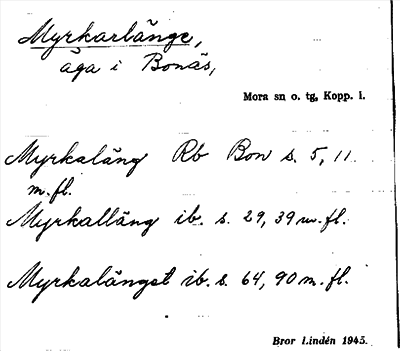 Myrkarlänge,
äga i Bonäs,
Mora sn o. tg, Kopp. l.
Myrkaläng Rb Bon s. 5, 11.
m. fl.
Myrkalläng ib. s. 29, 39 m. fl.
Myrkalängst ib. s. 64, 90 m. fl.
Bror Lindén 1945.